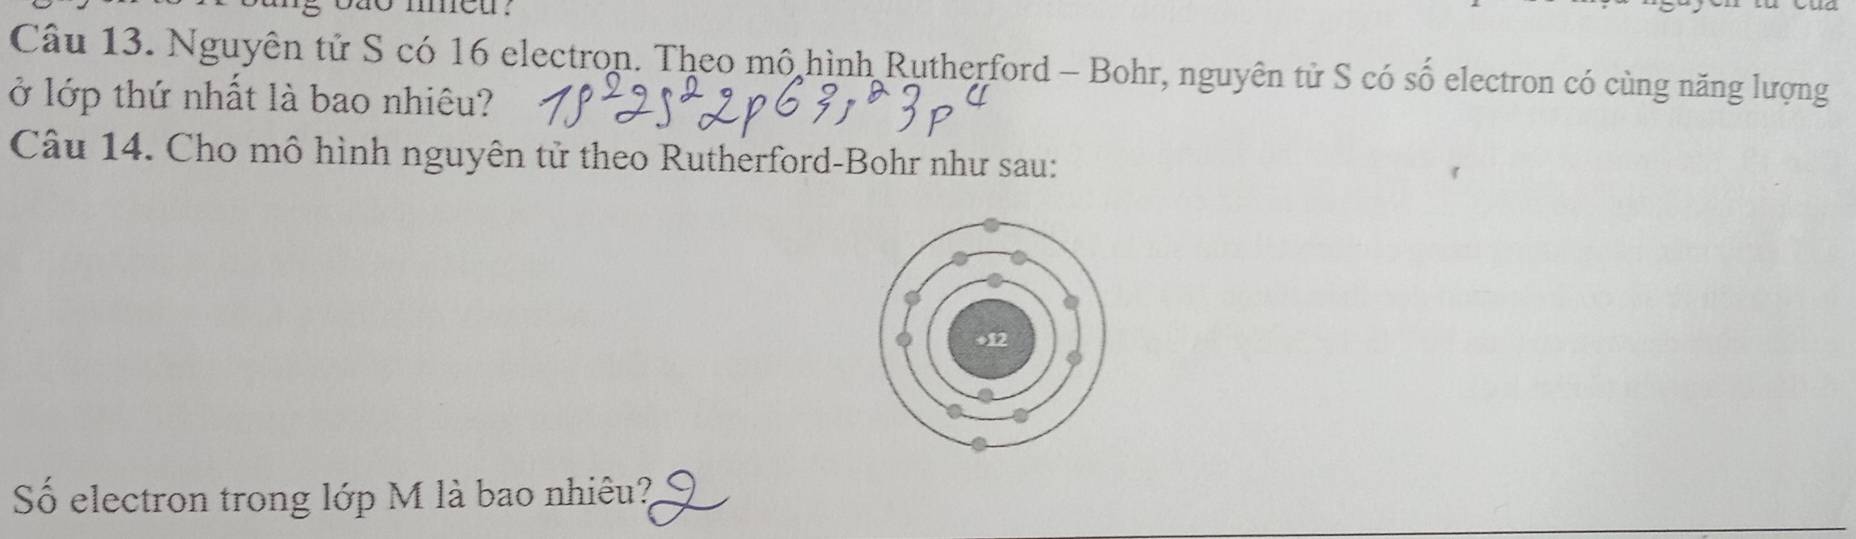 Câu 13. Nguyên tử S có 16 electron. Theo mô hình Rutherford – Bohr, nguyên tử S có số electron có cùng năng lượng
ở lớp thứ nhất là bao nhiêu? 1s² 2s² 2p6 3s² 3p⁴
Câu 14. Cho mô hình nguyên tử theo Rutherford-Bohr như sau:
+12
Số electron trong lớp M là bao nhiêu? 2